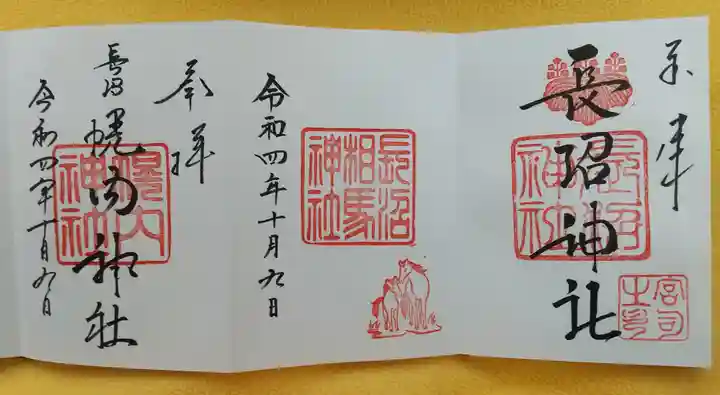 奉拝
長沼神社
長沼神社
宮司之印
長沼
相馬
神社
令和四年十月九日
奉拝
長沼
幌内神社
幌内神社
令和四年十月九日